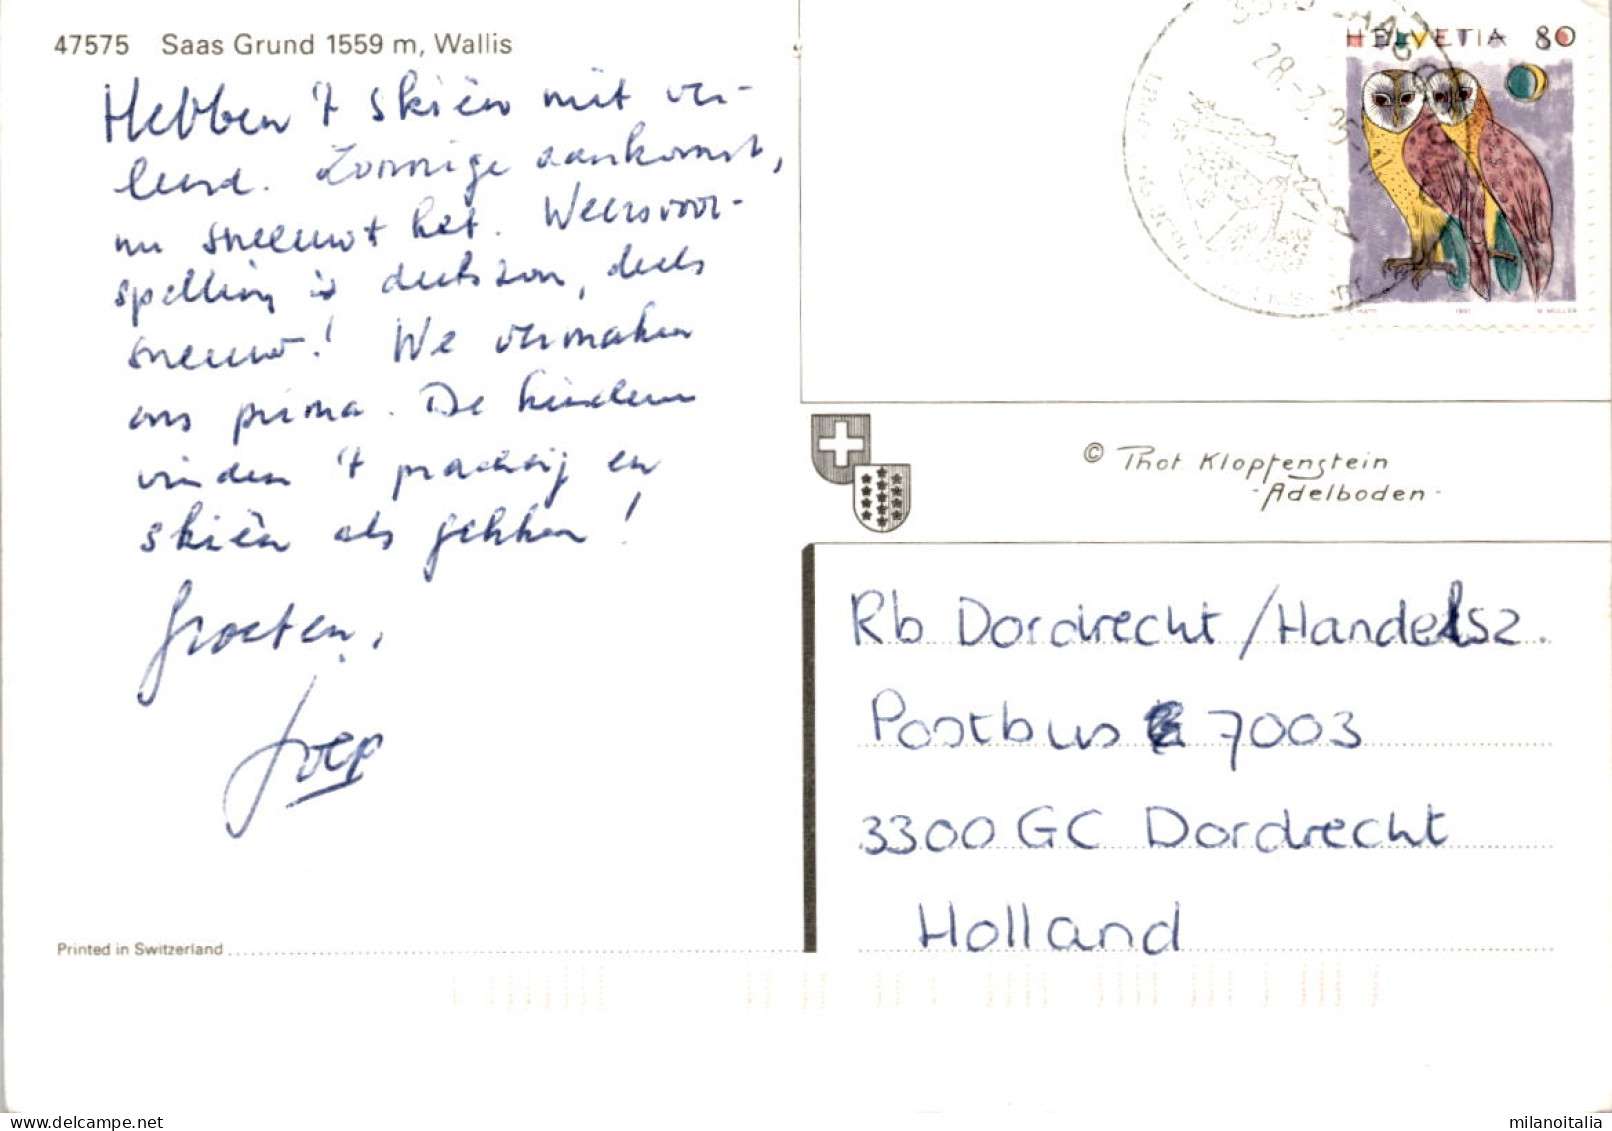 47575 Saas Grund 1559 m, Wallis
Hebben 't skiën niet ver-
leerd. Zonnige aankomst,
nu sneeuwt het. Weersvoor-
spelling is deels zon, deels
sneeuw! We vermaken
ons prima. De kinderen
vinden 't prachtig en
skiën als gekken!
Groeten,
Joep
Printed in Switzerland
28.-3.
HELVETIA 80
1991
M. MÜLLER
© Phot. Klopfenstein
- Adelboden -
Rb Dordrecht / Handelsz.
Postbus 7003
3300 GC Dordrecht
Holland
milanoitalia